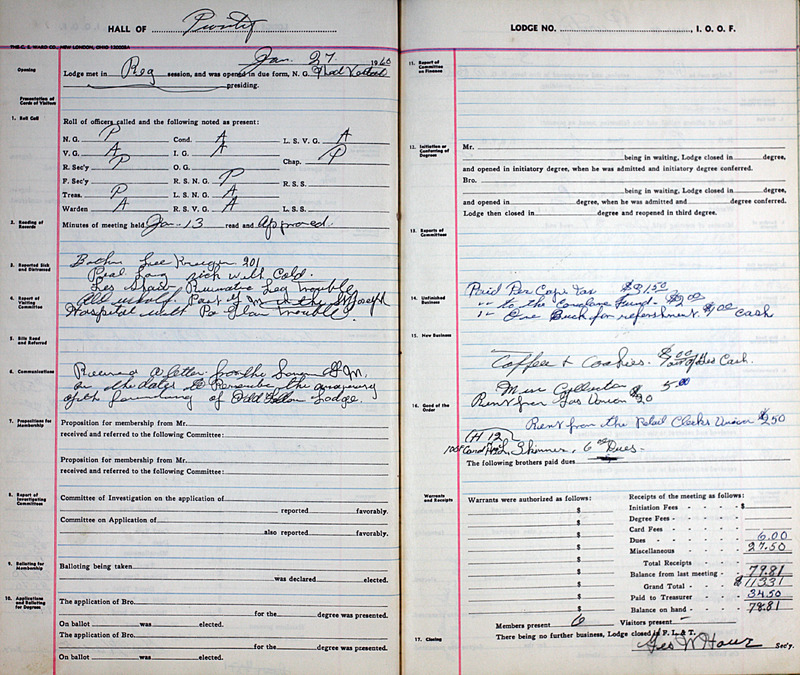 HALL OF Purity
THE C. E. WARD CO., NEW LONDON, OHIO
Jan. 27 1960
Opening
Lodge met in Reg session, and was opened in due form, N. G.
presiding.
Presentation of Cards of Visitors
1. Roll Call
Roll of officers called and the following noted as present:
N. G. P Cond. A L. S. V. G. A
V. G. A I. G. A Chap. P
R. Sec'y P O. G.
F. Sec'y R. S. N. G. P R. S. S.
Treas. P L. S. N. G. A
Warden A R. S. V. G. A L. S. S.
2. Reading of Records
Minutes of meeting held Jan. 13 read and Approved.
3. Reported Sick and Distressed
Lee Krueger 201
Paul Long sick with Cold.
Les Leg Trouble
4. Report of Visiting Committee
Past G M in the St Joseph
Hospital with Trouble.
5. Bills Read and Referred
6. Communications
Received a letter from the
on the dates to Remember the
of the founding of Odd Fellow Lodge.
7. Propositions for Membership
Proposition for membership from Mr.
received and referred to the following Committee:
Proposition for membership from Mr.
received and referred to the following Committee:
8. Report of Investigating Committees
Committee of Investigation on the application of
reported favorably.
Committee on Application of
also reported favorably.
9. Balloting for Membership
Balloting being taken
was declared elected.
10. Applications and Balloting for Degrees
The application of Bro.
for the degree was presented.
On ballot was elected.
The application of Bro.
for the degree was presented.
On ballot was elected.
LODGE NO. , I. O. O. F.
11. Report of Committee on Finance
12. Initiation or Conferring of Degrees
Mr.
being in waiting, Lodge closed in degree,
and opened in initiatory degree, when he was admitted and initiatory degree conferred.
Bro.
being in waiting, Lodge closed in degree,
and opened in degree, when he was admitted and degree conferred.
Lodge then closed in degree and reopened in third degree.
13. Reports of Committees
14. Unfinished Business
Paid Per Capa Tax $31.50
" to the Fund. $2.00
" One Buck for refreshment. $1.00 cash
15. New Business
Coffee & Cookies. $1.00 Cash.
Collection 5.00
16. Good of the Order
Rent from Gas Union $20
Rent from the Retail Clerks Union $2.50
Skinner, 6.00 Dues.
The following brothers paid dues
Warrants and Receipts
Warrants were authorized as follows:
$
$
$
$
$
$
$
$
$
Receipts of the meeting as follows:
Initiation Fees $
Degree Fees
Card Fees
Dues 6.00
Miscellaneous 27.50
Total Receipts
Balance from last meeting 79.81
Grand Total $113.31
Paid to Treasurer 34.50
Balance on hand 78.81
Members present 6 Visitors present –
17. Closing
There being no further business, Lodge closed in F. L. & T.
Sec'y.